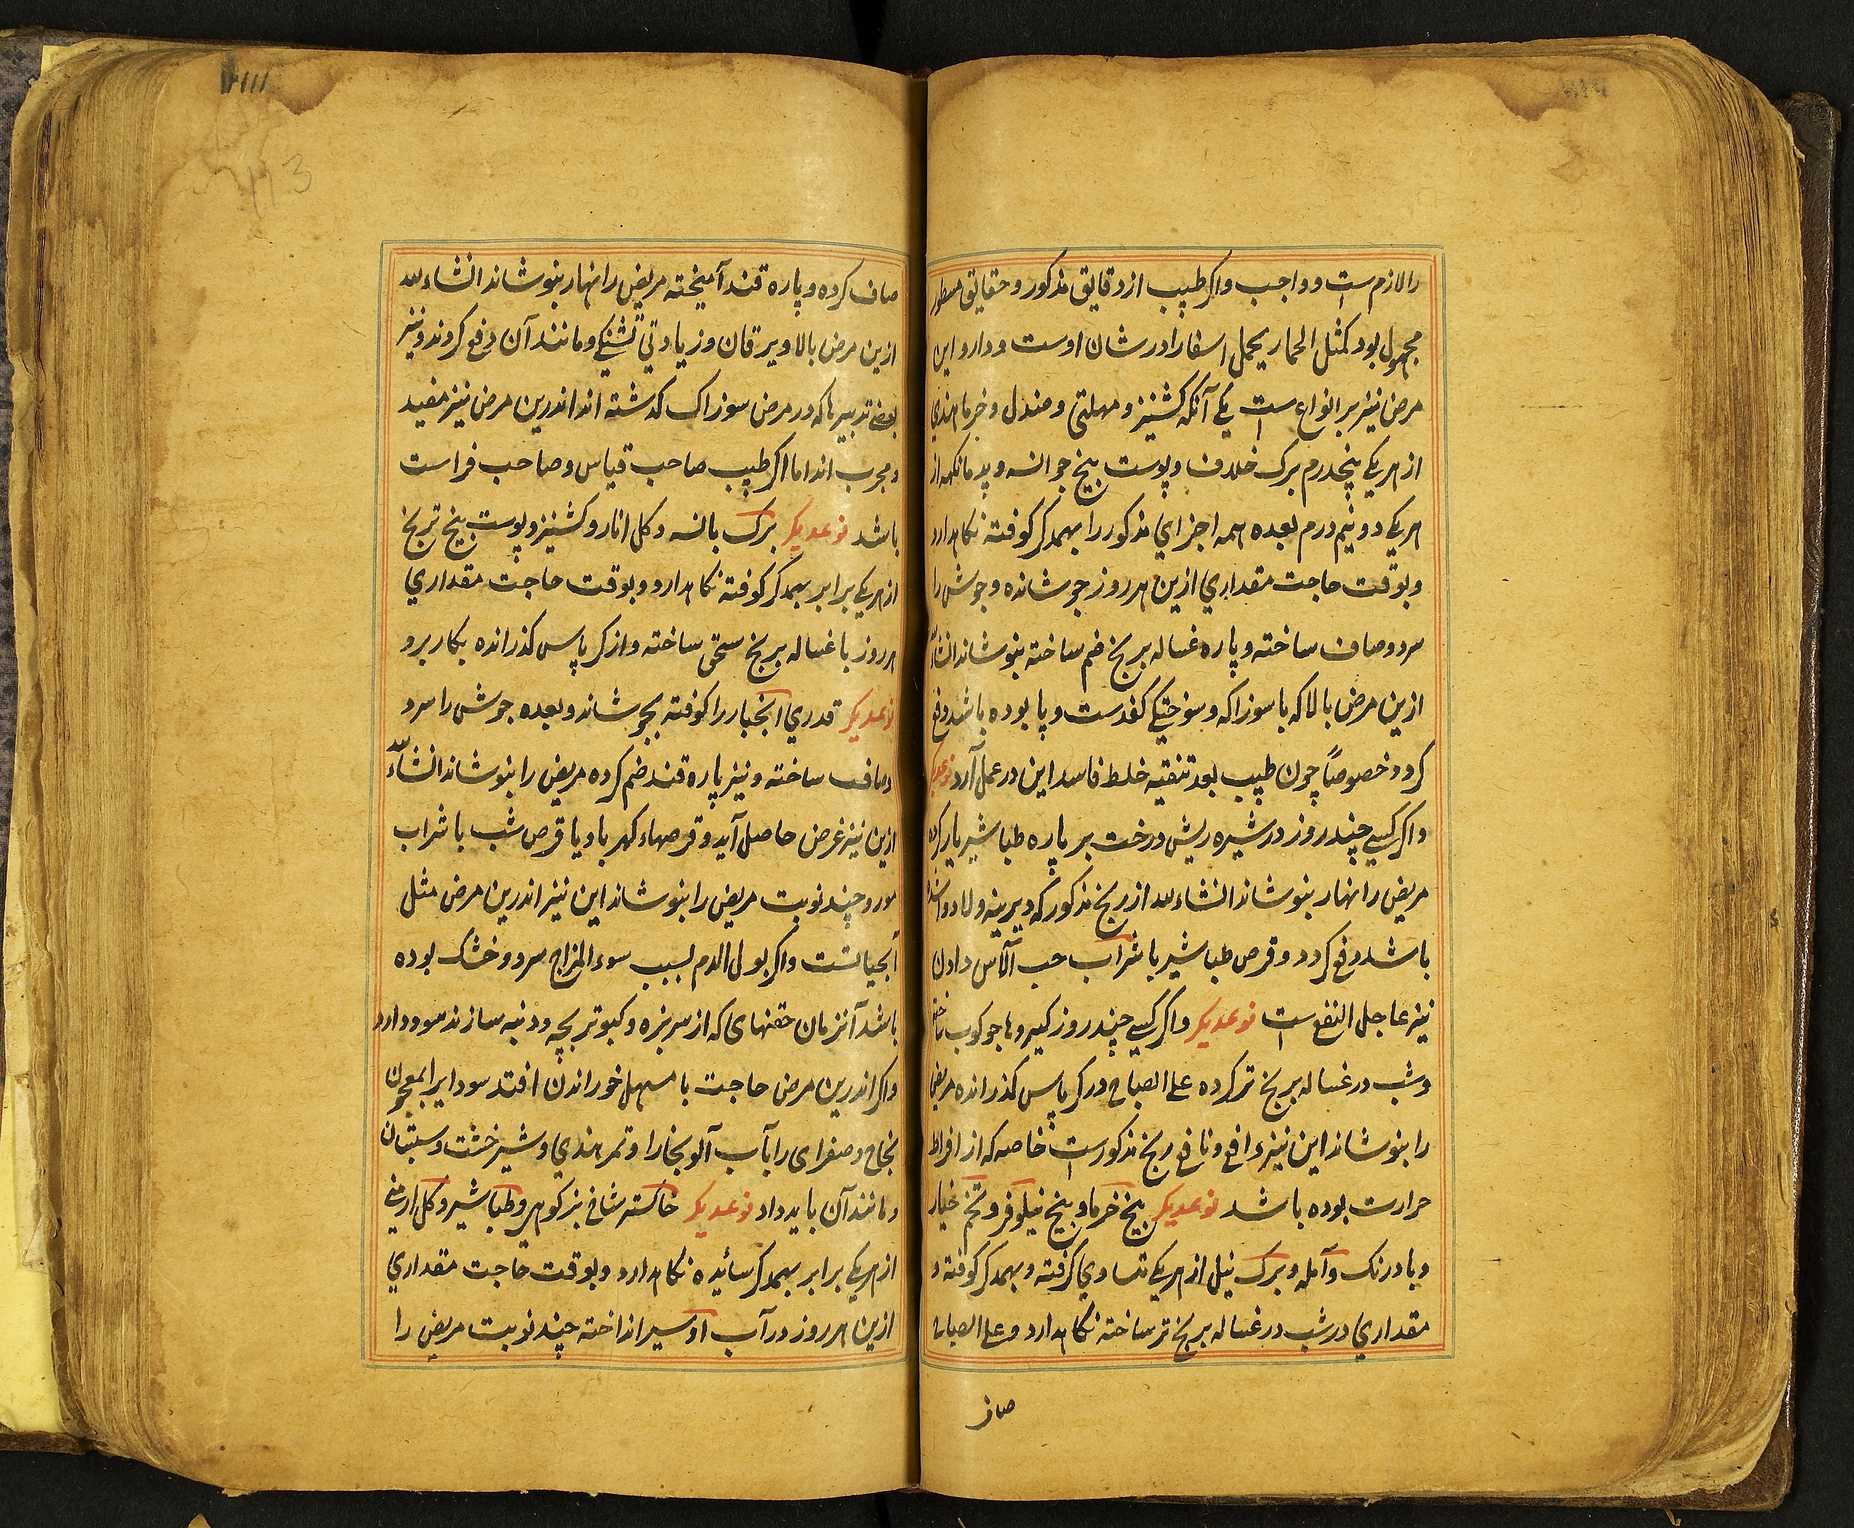 را لازم است و واجب و اکر طبیب از دقایق مذکور و حقایق مسطور
مجهول بود کمثل الحمار یحمل اسفارا در شان اوست و دارو این
مرض نیز بر انواع است یکی آنکه کشنیز و مهلتی و صندل و خرما هندی
از هر یکی پنجدرم برک خلاف و پوست بیخ جوانسه و از
هر یکی دو نیم درم بعده همه اجزای مذکور را بهمدکر کوفته نکاهدارد
و بوقت حاجت مقداری ازین هر روز جوشانده و جوش را
سرد و صاف ساخته و پاره غساله برنج ضم ساخته بنوشاند انشاءالله
ازین مرض بالا که با سوزاکه و سوختیکی کفدست و پا بوده باشد دفع
کردد خصوصاً چون طبیب بعد تنقیه خلط فاسد این در عمل آرد نوعدیکر
و اکر کسی چند روز در شیره ریش درخت بر پاره طباشیر یار کرده
مریض را نهار بنوشاند انشاءالله از رنج مذکور که دیرینه و لادوا شده
باشد دفع کردد و قرص طباشیر با شراب حب الآس دادن
نیز عاجل النفع است نوعدیکر و اکر کسی چند روز کیرو ها جوکوب ساخته
و شب در غساله برنج تر کرده علی الصباح در کرپاس کذرانده مریض
را بنوشاند این نیز دافع و نافع رنج مذکور است خاصه که از افراط
حرارت بوده باشد نوعدیکر بیخ خرما و بیخ نیلوفر و تخم خیار
و بادرنک و آمله و برک نیل از هر یکی تساوی کرفته و بهمدکر کوفته و
مقداری در شب در غساله برنج تر ساخته نکاهدارد و علی الصباح
صاف
صاف کرده و پاره قند آمیخته مریض را نهار بنوشاند انشاءالله
ازین مرض بالا و یرقان و زیادتی تشنکی و مانند آن دفع کردند و نیز
بعضی تدبیرها که در مرض سوزاک کذشته اند اندرین مرض نیز مفید
و مجرب اند اما اکر طبیب صاحب قیاس و صاحب فراست
باشد نوعدیکر برک بانسه و کل انار و کشنیز و پوست بیخ ترنج
از هر یکی برابر بهمدکر کوفته نکاهدارد و بوقت حاجت مقداری
هر روز با غساله برنج سحق ساخته و از کرپاس کذرانده بکار برد
نوعدیکر قدری انجبار را کوفته بجوشاند و بعده جوش را سرد
و صاف ساخته و نیز پاره قند ضم کرده مریض را بنوشاند انشاءالله
ازین نیز غرض حاصل آید و قرصهاء کهربا و یا قرص شب با شراب
مورد چند نوبت مریض را بنوشاند این نیز اندرین مرض مثل
آبحیاتست و اکر بول الدم بسبب سوء المزاج سرد و خشک بوده
باشد آنزمان حقنهای که از سر بزه و کبوتر بچه و دنبه سازند سود دارد
و اکر اندرین مرض حاجت با مسهل خوراندن افتد سودایرا بمعجون
نجاح و صفرای را بآب آلو بخارا و تمر هندی و شیر خشت و سپستان
و مانند آن باید داد نوعدیکر خاکسته شاخ بز کوهی و طباشیر و کل ارمنی
از هر یکی برابر بهمدکر سائیده نکاهدارد و بوقت حاجت مقداری
ازین هر روز در آب آوسیر انداخته چند نوبت مریض را
113